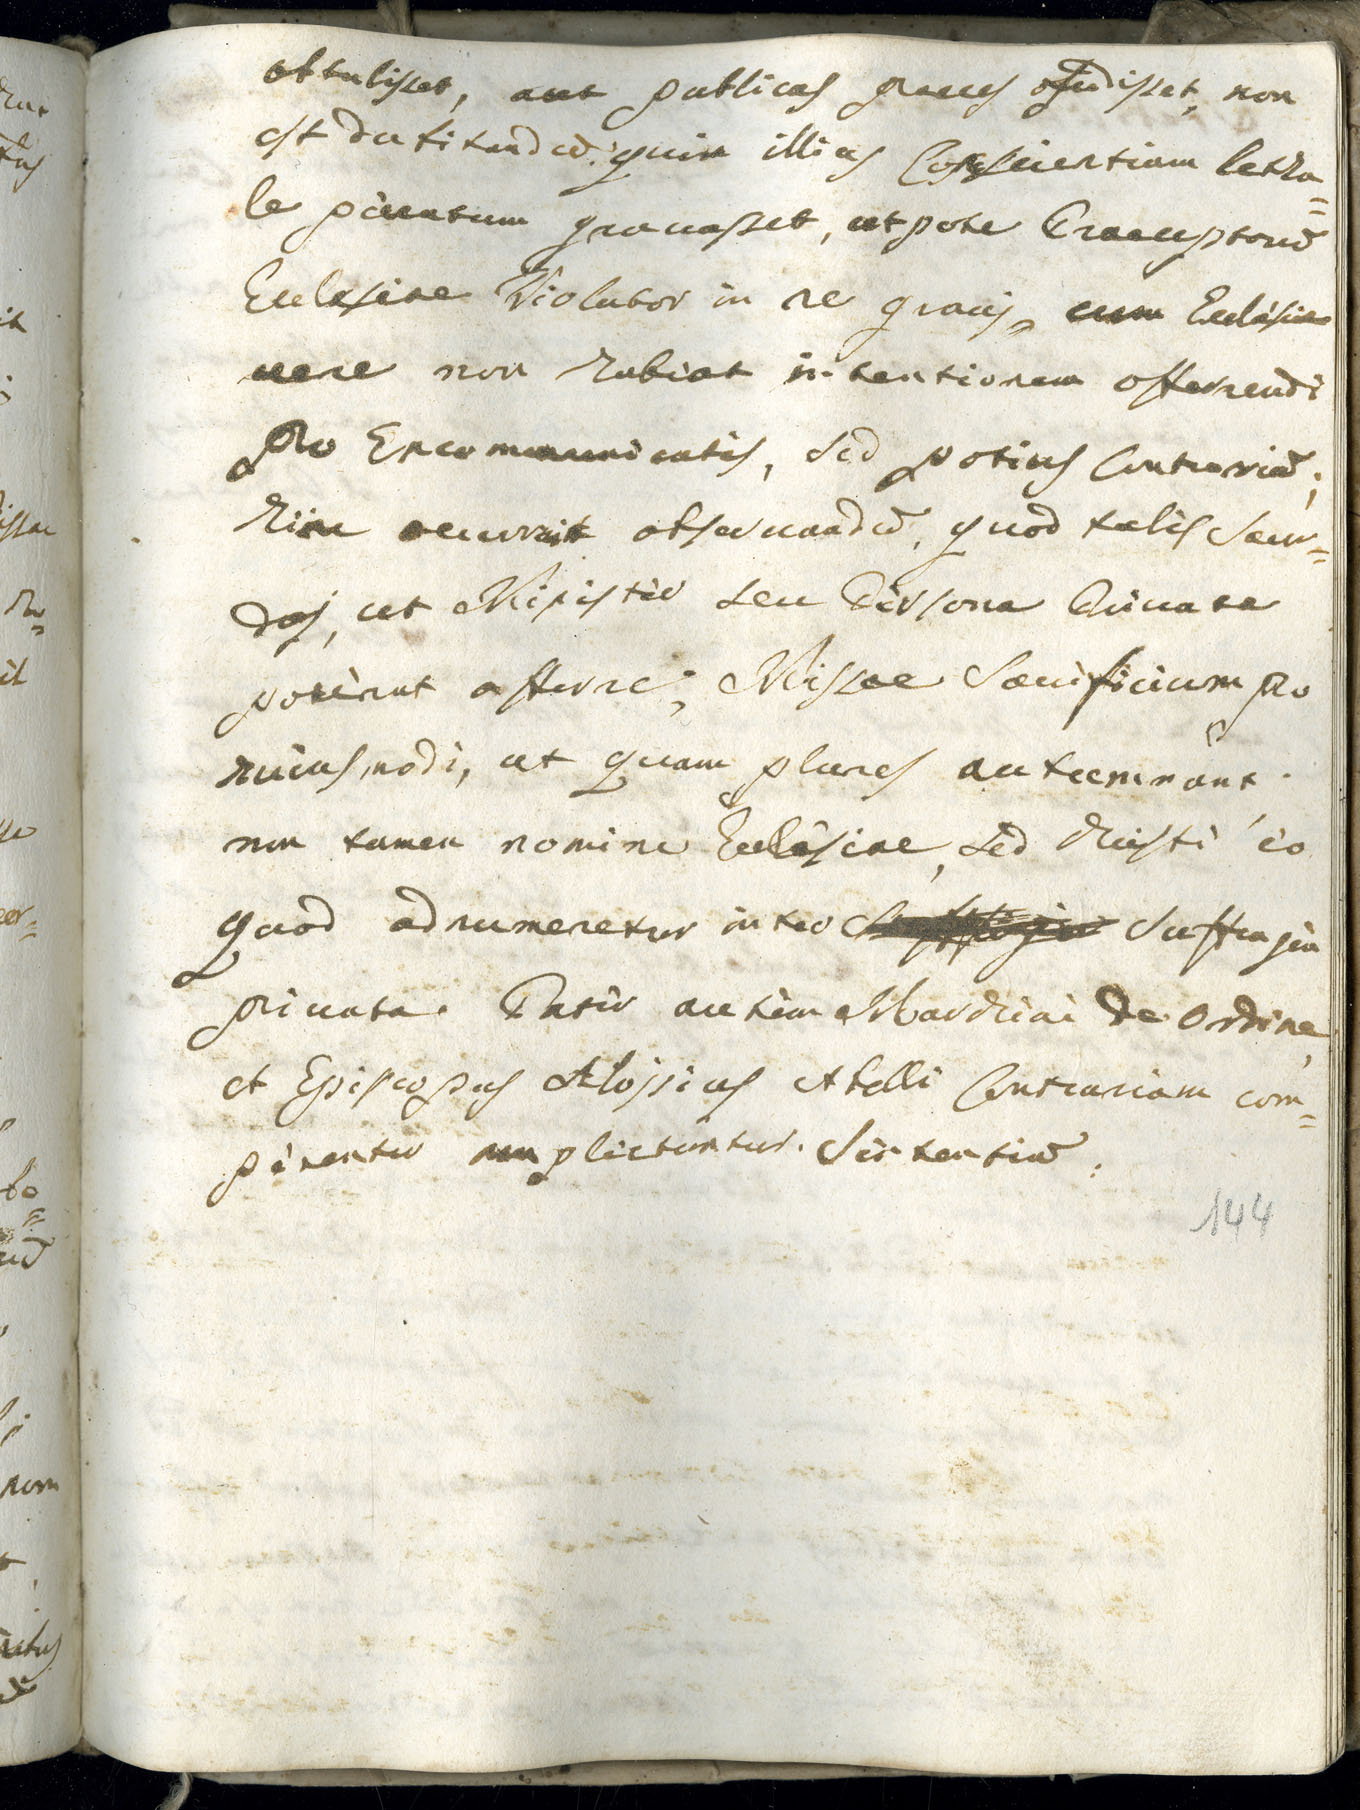 obtulisset, aut publicas preces ofudisset, non
est dubitandũ. quin illius Conscientiam letha=
le pecatum gravasset, utpote Praeceptorũ
Ecclesiae Violator in re gravj, cum Ecclesia
vere non habeat intentionem offerrendi
pro Excommunicatis, sed potius Contrariũ;
hinc occurrit observandũ, quod talis Sacer=
dos, ut Minister seu Persona Privata
poterat offerre, Missae Sacrificium pro
huiusmodi, ut quam plures autumnant.
non tamen nomine Ecclesiae, sed Christi eo
quod adnumeretur inter Suffragia
privata. Pater autem Marchini de Ordine,
et Episcopus Aloysius Abelli Contrariam com=
petenter amplectuntur. Sententiã.
144